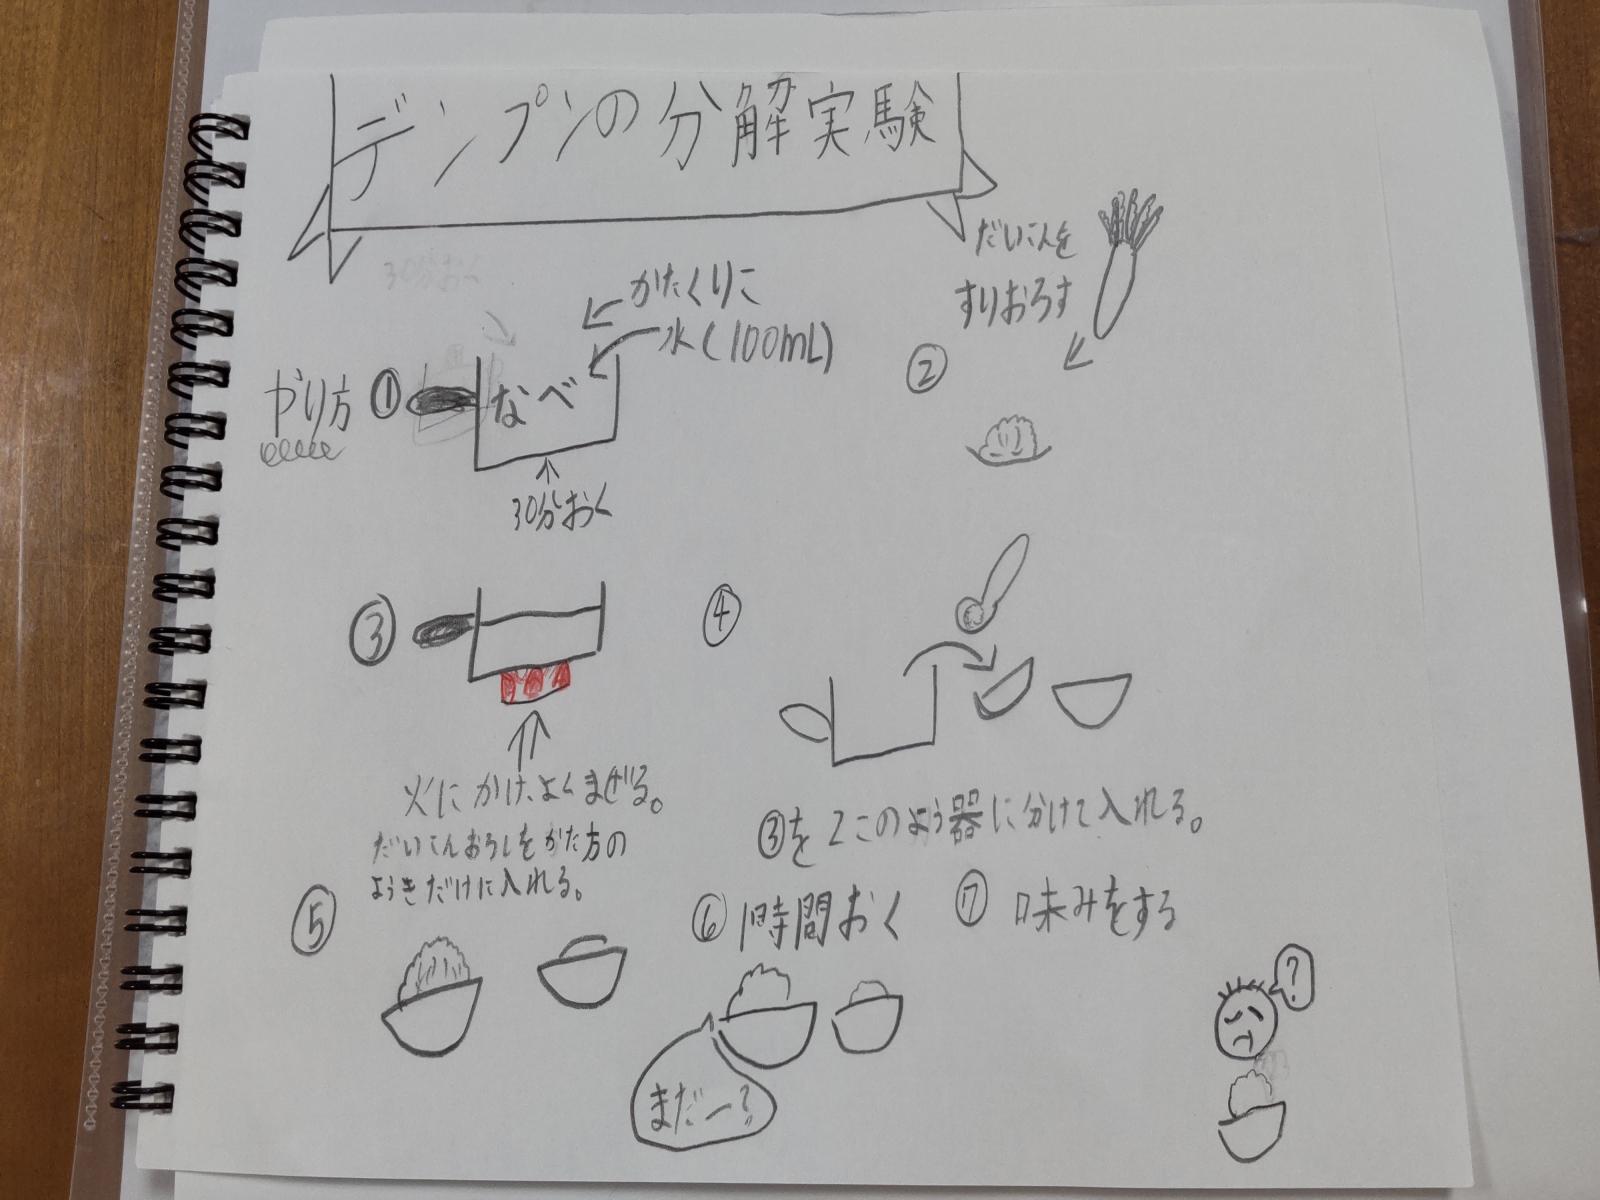 デンプンの分解実験
30分おく
やり方
①
かたくりこ
水(100mL)
なべ
30分おく
②
だいこんを
すりおろす
③
火にかけ、よくまぜる。
④
③を2このよう器に分けて入れる。
⑤
だいこんおろしをかた方の
ようきだけに入れる。
⑥ 1時間おく
まだー?
⑦ 味みをする
?